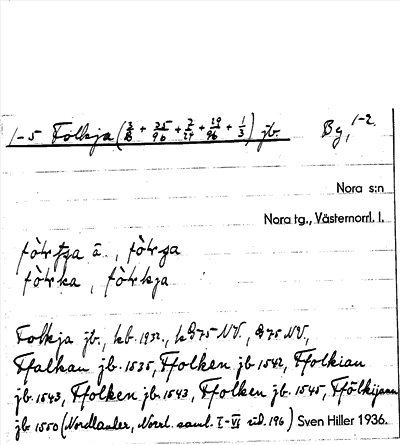 1-5 Folkja (3/8 + 25/96 + 7/24 + 29/96 + 1/3) jb. By, 1-2.
Nora s:n
Nora tg., Västernorrl. l.
Folkja jb., kb. 1932, NV., NV.,
Ffalkan jb. 1535, Ffolken jb. 1542, Ffolkian
jb. 1543, Ffolken jb. 1543, Ffolken jb. 1545, Ffolkijann
jb. 1550 (Nordlander, Norrl. saml. I-VI sid. 196) Sven Hiller 1936.